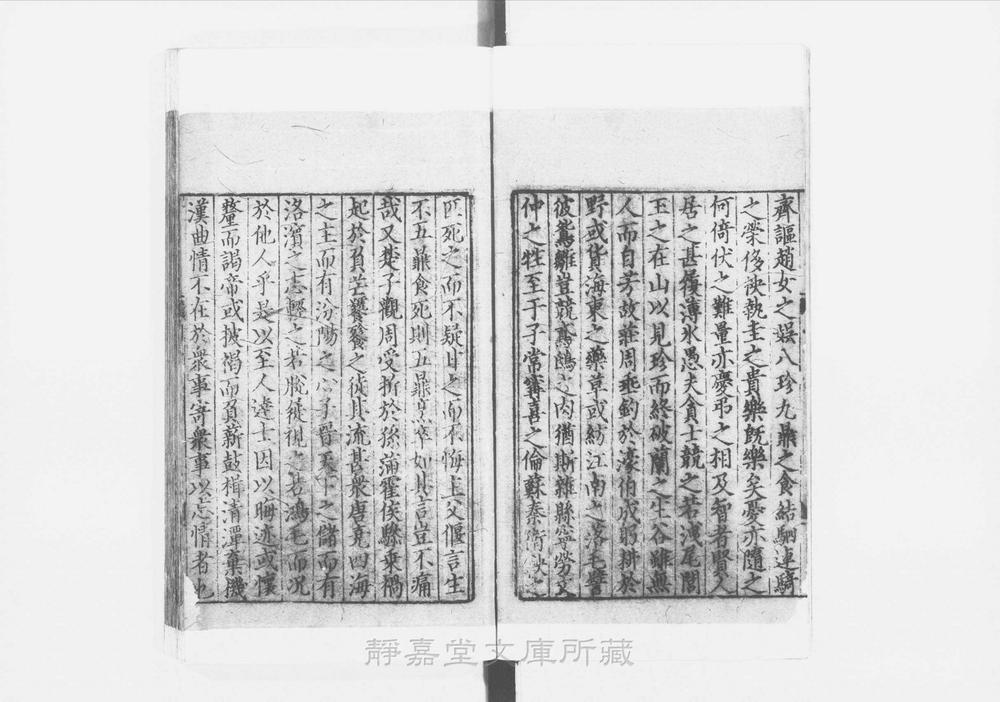 齊謳趙女之娛八珍九鼎之食結駟連騎
之榮侈袂執圭之貴樂旣樂矣憂亦隨之
何倚伏之難量亦慶弔之相及智者賢人
居之甚履薄氷愚夫貪士競之若洩尾閭
玉之在山以見珍而終破蘭之生谷雖無
人而自芳故莊周垂釣於濠伯成躬耕於
野或貨海東之藥草或紡江南之落毛譬
彼鴛雛豈競鳶鴟之肉猶斯雜縣寧勞文
仲之牲至于子常甯喜之倫蘇秦衛鞅之
匹死之而不疑甘之而不悔主父偃言生
不五鼎食死則五鼎烹卒如其言豈不痛
哉又楚子觀周受折於孫滿霍侯驂乘禍
起於負芒饕餮之徒其流甚衆唐堯四海
之主而有汾陽之心子晉天下之儲而有
洛濱之志輕之若脫屣視之若鴻毛而况
於他人乎是以至人達士因以晦迹或懷
釐而謁帝或披褐而負薪鼓楫清潭棄機
漢曲情不在於衆事寄衆事以忘情者也
靜嘉堂文庫所藏